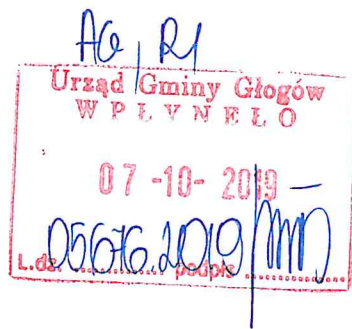 AG, RI
Urząd Gminy Głogów
WPŁYNĘŁO
07-10-2019
L.dz. 05676.2019 podpis